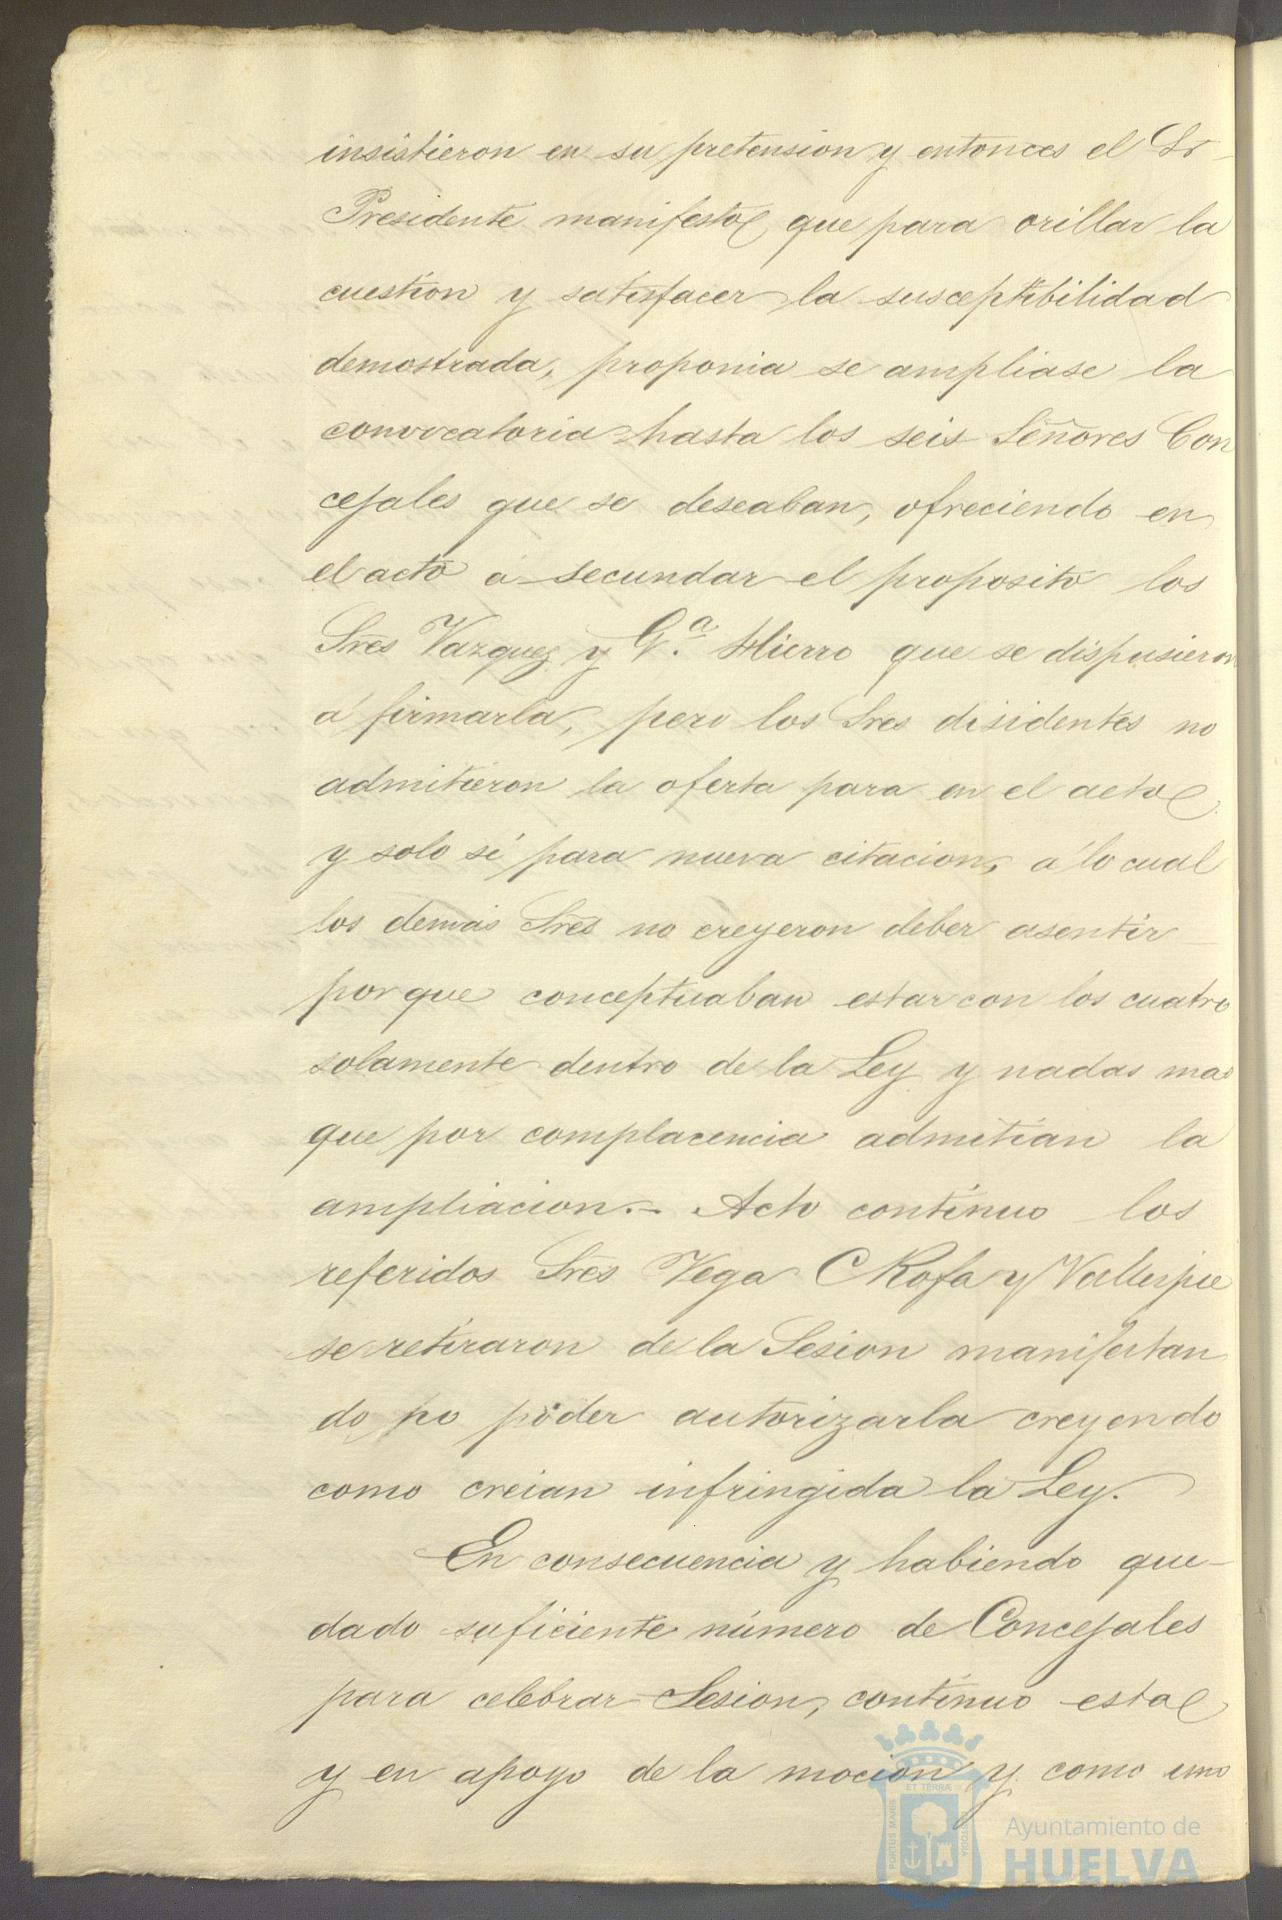 insistieron en su pretension y entonces el Sr
Presidente manifestó que para orillar la
cuestion y satisfacer la susceptibilidad
demostrada, proponia se ampliase la
convocatoria hasta los seis Señores Con
cejales que se deseaban, ofreciendo en
el acto á secundar el proposito los
Sres Vazquez y G.ª Hierro que se dispusieron
á firmarla, pero los Sres disidentes no
admitieron la oferta para en el acto
y solo sí para nueva citacion, á lo cual
los demás Sres no creyeron deber asentir
porque conceptuaban estar con los cuatro
solamente dentro de la Ley y nadas mas
que por complacencia admitian la
ampliacion.- Acto contínuo los
referidos Sres Vega y
se retiraron de la Sesion manifestan
do no poder autorizarla creyendo
como creian infringida la Ley.
En consecuencia y habiendo que-
dado suficiente número de Concejales
para celebrar Sesion, contínuo esta
y en apoyo de la mocion y como uno
PORTUS MARIS ET TERRÆ CUSTODIA
Ayuntamiento de
HUELVA